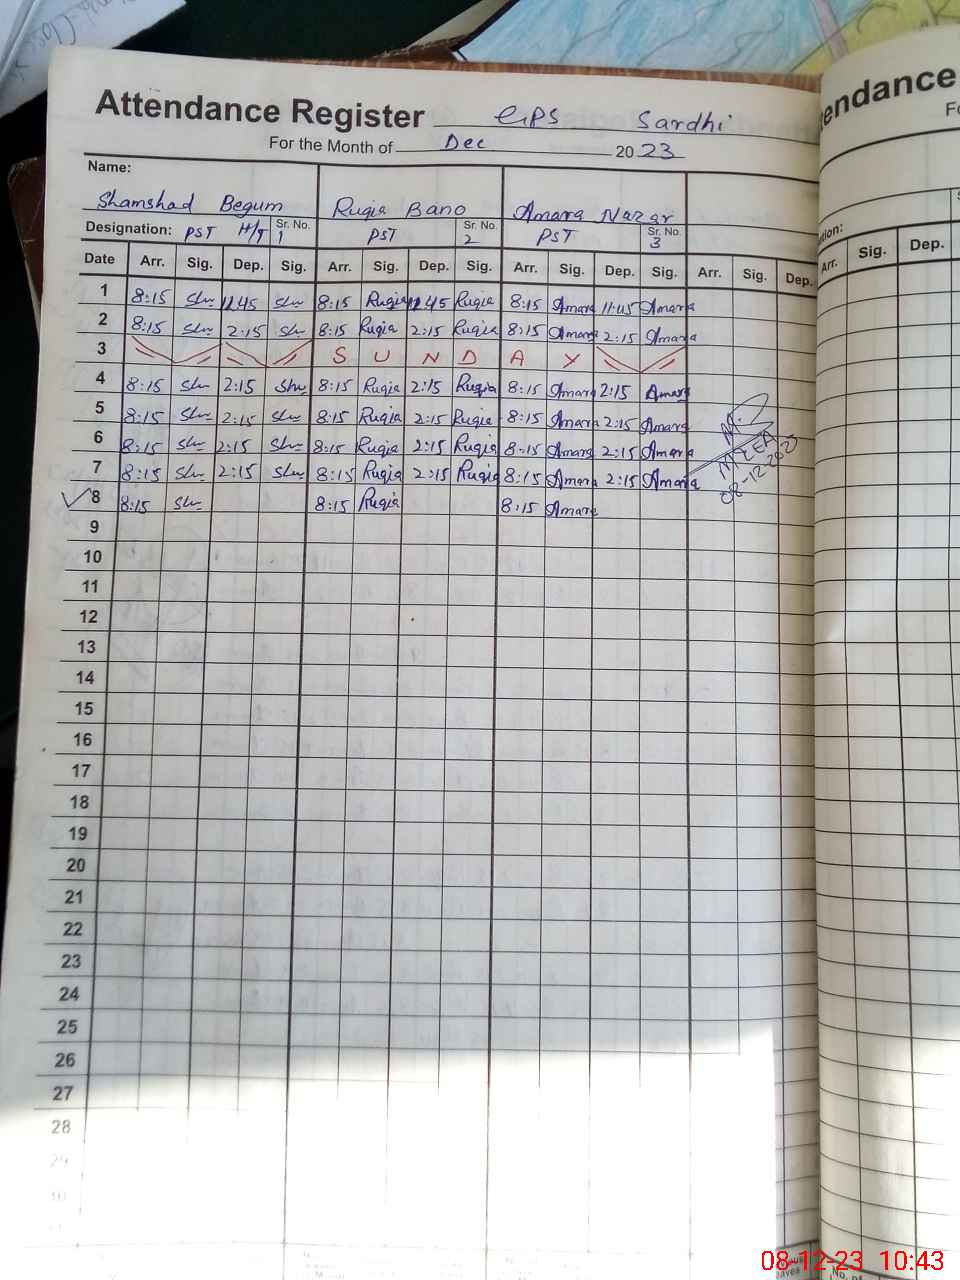 Attendance Register GPS Sardhi
For the Month of Dec 2023
Name:
Shamshad Begum Ruqia Bano Amara Nazar
Designation: PST H/T Sr. No. 1 PST Sr. No. 2 PST Sr. No. 3
Date Arr. Sig. Dep. Sig. Arr. Sig. Dep. Sig. Arr. Sig. Dep. Sig. Arr. Sig. Dep.
1 8:15 11:45 8:15 Ruqia 11:45 Ruqia 8:15 Amara 11:45 Amara
2 8:15 2:15 8:15 Ruqia 2:15 Ruqia 8:15 Amara 2:15 Amara
3 S U N D A Y
4 8:15 2:15 8:15 Ruqia 2:15 Ruqia 8:15 Amara 2:15 Amara
5 8:15 2:15 8:15 Ruqia 2:15 Ruqia 8:15 Amara 2:15 Amara
6 8:15 2:15 8:15 Ruqia 2:15 Ruqia 8:15 Amara 2:15 Amara
7 8:15 2:15 8:15 Ruqia 2:15 Ruqia 8:15 Amara 2:15 Amara
MEA
08-12-2023
8 8:15 8:15 Ruqia 8:15 Amara
9
10
11
12
13
14
15
16
17
18
19
20
21
22
23
24
25
26
27
28
29
endance
Arr. Sig. Dep.
08-12-23 10:43